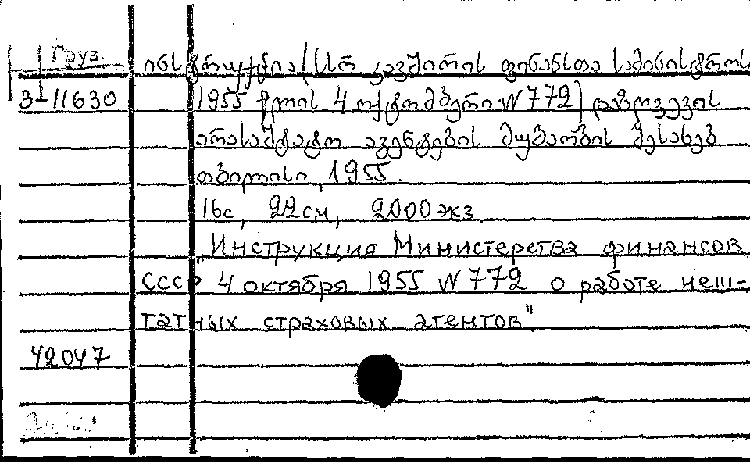 Груз.
ინსტრუქცია (სსრ კავშირის ფინანსთა სამინისტროს
3-11630
1955 წლის 4 ოქტომბერი N 772) დაზღვევის
არასაშტატო აგენტების მუშაობის შესახებ
თბილისი, 1955.
16с, 22см, 2000 экз.
"Инструкция Министерства финансов
СССР 4 октября 1955 N 772 о работе неш-
татных страховых агентов"
42047